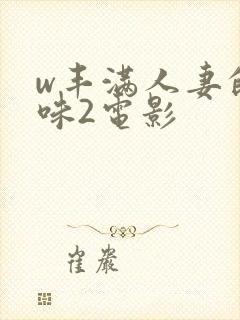 w丰满人妻
味2电影
崔嚴